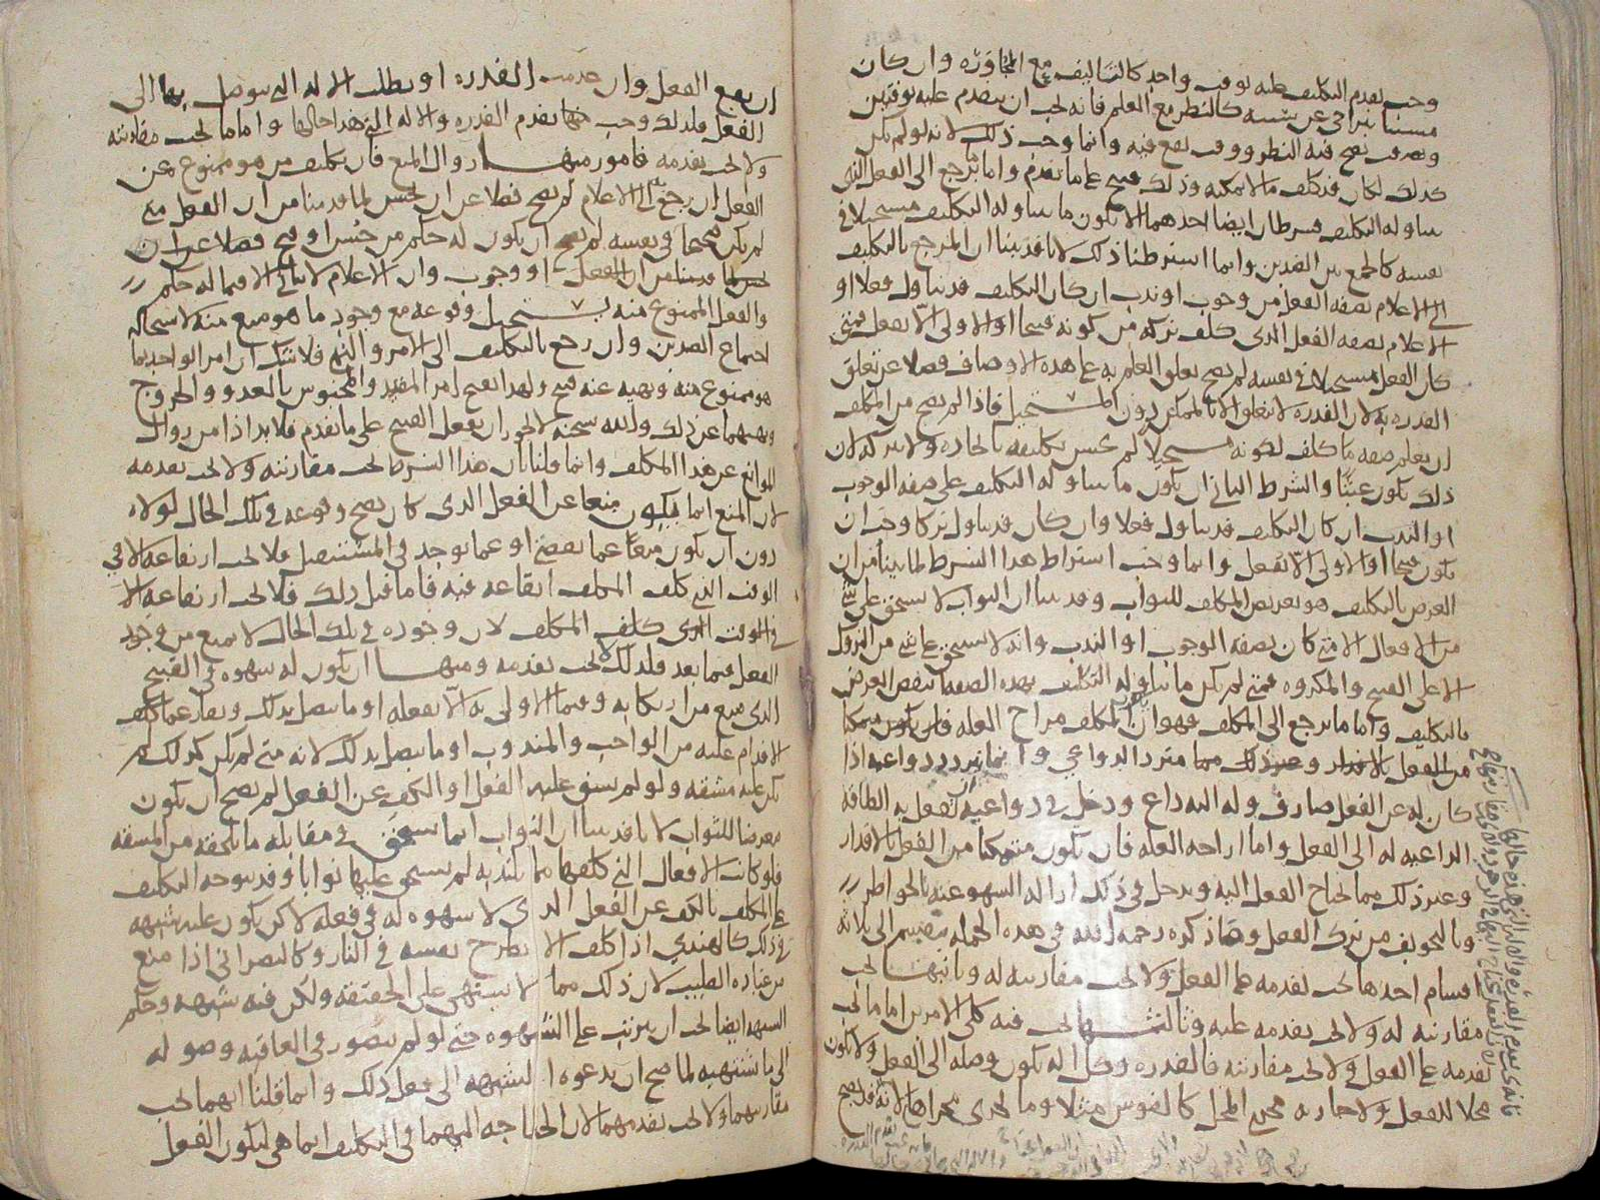 وجب تقدم التكليف عليه بوقت واحد كالتأليف مع المجاورة وان كان
مسببا يتراخى عن سببه كالنظر مع العلم فانه يجب ان يتقدم عليه بوقتين
وقت يصح فيه النظر ووقت يقع فيه وانما وجب ذلك لانه لو لم يكن
كذلك لكان قد كلف ما لا يمكنه وذلك قبيح على ما تقدم واما ما يرجع الى الفعل الذي
يتناوله التكليف فشرطان ايضا احدهما الا يكون ما يتناوله التكليف مستحيلا في
نفسه كالجمع بين الضدين وانما اشترطنا ذلك لانا قد بينا ان المرجع بالتكليف
الى الاعلام بصفة الفعل من وجوب او ندب ان كان التكليف قد يتناول فعلا او
الاعلام بصفة الفعل الذي كلف تركه من كونه قبيحا او الاولى الا يفعل فمتى
كان الفعل مستحيلا في نفسه لم يصح تعلق العلم به على هذه الاوصاف فضلا عن تعلق
القدرة به لان القدرة لا تتعلق الا بالممكن دون المستحيل فاذا لم يصح من المكلف
ان يعلم صفة ما كلف لكونه مستحيلا لم يحسن تكليفه بايجاده ولا بتركه لان
ذلك يكون عبثا والشرط الثاني ان يكون ما يتناوله التكليف على صفة الوجوب
او الندب ان كان التكليف قد يتناول فعلا وان كان قد يتناول تركا وجب ان
يكون قبيحا او الاولى الا يفعل وانما وجب اشتراط هذا الشرط لما بينا من ان
الغرض بالتكليف هو تعريض المكلف للثواب وقد بينا ان الثواب لا يستحق على شيء
من الافعال الا متى كان بصفة الوجوب او الندب وانه لا يستحق على شيء من التروك
الا على القبيح والمكروه فمتى لم يكن ما يتناوله التكليف بهذه الصفة انتقض الغرض
بالتكليف واما ما يرجع الى المكلف فهو ان يكون المكلف مزاح العلة فان يكون متمكنا
من الفعل بالاقدار وغير ذلك مما متردد الدواعي وانما يتردد دواعيه اذا
كان له عن الفعل صارف وله اليه داع ودخل في دواعيه ان يفعل به الطافه
الداعية له الى الفعل واما ازاحة العلة فان يكون متمكنا من الفعل بالاقدار
وغير ذلك مما يحتاج الفعل اليه ويدخل في ذلك ازالة السهو عنه بالخواطر
وبالتخويف من ترك الفعل وما ذكره رحمه الله في هذه الجملة ينقسم الى ثلاثة
اقسام احدها يجب تقدمه على الفعل ولا يجب مقارنته له وثانيها يجب
مقارنته له ولا يجب تقدمه عليه وثالثها يجب فيه كلى الامرين اما ما يجب
تقدمه على الفعل ولا يجب مقارنته فالقدرة وكل الة تكون وصلة الى الفعل ولا تكون
محلا للفعل ولا جارية مجرى المحل كالقوس مثلا وما يجري مجراها لانه قد يصح
ان يقع الفعل وان عدمت القدرة او بطلت الالة التي يتوصل بها الى
الفعل فلذلك وجب فيها تقدم القدرة والالة التي هذا حالها واما ما يجب مقارنته
ولا يجب تقدمه فامور منها زوال المنع فان تكليف من هو ممنوع عن
الفعل ان رجع به الى الاعلام لم يصح فضلا عن ان يحسن لما قدمنا من ان الفعل متى
لم يكن صحيحا في نفسه لم يصح ان يكون له حكم من حسن او قبح فضلا عن ان
او وجوب وان الاعلام لا يتاتى الا فيما له حكم
والفعل الممنوع منه يستحيل وقوعه مع وجود ما هو منع منه لاستحالة
اجتماع الضدين وان رجع بالتكليف الى الامر والنهي فلا شك ان امر الواحد بما
هو ممنوع منه ونهيه عنه قبيح ولهذا يقبح امر المقيد والمحبوس بالعدو والخروج
ونهيهما عن ذلك والله سبحنه لا يجوز ان يفعل القبيح على ما تقدم فلا بد اذا من زوال
الموانع عن هذا المكلف وانما قلنا بان هذا الشرط يجب مقارنته ولا يجب تقدمه
لان المنع انما يكون منعا عن الفعل الذي كان يصح وقوعه في تلك الحال لولاه
دون ان يكون منعا عما تقضى او عما يوجد في المستقبل فلا يجب ارتفاعه الا في
الوقت الذي كلف المكلف ايقاعه فيه فاما قبل ذلك فلا يجب ارتفاعه الا
في الوقت الذي كلف المكلف لان وجوده في تلك الحال لا يمنع من وجود
الفعل فيما بعد فلذلك لا يجب تقدمه ومنها ان يكون له شهوة في القبيح
الذي منع من ارتكابه وفيما الاولى به الا يفعله او ما يتصل بذلك ونفار عما كلف
الاقدام عليه من الواجب والمندوب او ما يتصل بذلك لانه متى لم يكن كذلك لم
تكن عليه مشقة ولو لم يشق عليه الفعل او الكف عن الفعل لم يصح ان يكون
معرضا للثواب لانا قد بينا ان الثواب انما يستحق في مقابلة ما يلحقه من المشقة
فلو كانت الافعال التي كلفها مما يلتذ به لم يستحق عليها ثوابا وقد يتوجه التكليف
على المكلف بالكف عن الفعل الذي لا شهوة له في فعله لكن يكون عليه شبهة
في ذلك كالهندي اذا كلف الا يطرح نفسه في النار وكالنصراني اذا منع
من عبادة الصليب لان ذلك مما لا يشتهى على الحقيقة ولكن فيه شبهة وحكم
الشبهة ايضا يجب ان يترتب على الشهوة حتى لو لم يتصور في العاقبة وصوله
الى ما يشتهيه لما صح ان يدعوه الشبهة الى فعل ذلك وانما قلنا انهما يجب
مقارنتهما ولا يجب تقدمهما لان الحاجة اليهما في التكليف انما هي ليكون الفعل